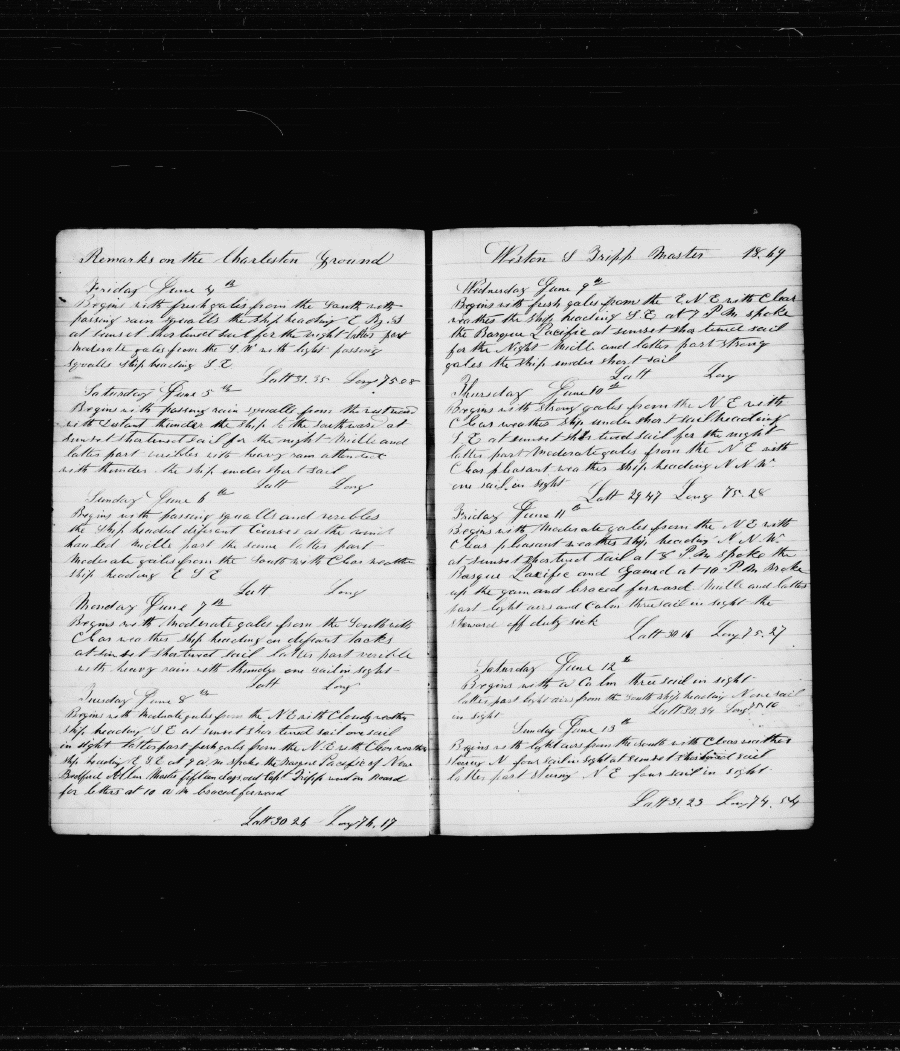 Remarks on the Charleston Ground
Friday June 4th
Begins with fresh gales from the South with
passing rain squalls the ship heading
at sunset shortened sail for the night latter part
Moderate gales from the S.W. with light passing
squalls ship heading S E
Latt 31.35 Long 75.08
Saturday June 5th
Begins with passing rain squalls from the
with distant thunder the ship to the southward at
sunset shortened sail for the night Middle and
latter part with heavy rain attended
with thunder the ship under short sail
Latt Long
Sunday June 6th
Begins with passing squalls and
the ship headed Courses as the wind
hauled Middle part the same latter part
Moderate gales from the South with Clear weather
ship heading E S E
Latt Long
Monday June 7th
Begins with Moderate gales from the South with
Clear weather ship heading on tacks
at sunset shortened sail latter part
with heavy rain with thunder one sail in sight
Latt Long
Tuesday June 8th
Begins with Moderate gales from the N E with Cloudy weather
ship heading S E at sunset shortened sail one sail
in sight latter part fresh gales from the N.E. with Clear weather
ship heading E S E at 9 a.m spoke the Barque Pacific of New
Bedford Allen Master days out Capt Tripp went on Board
for letters at 10 a m braced forward
Latt 30 26 Long 76.17
Weston S Tripp Master 1869
Wednesday June 9th
Begins with fresh gales from the E N E with Clear
weather the ship heading S.E. at 7 P.M spoke
the Barque Pacific at sunset shortened sail
for the Night Middle and latter part strong
gales the ship under short sail
Latt Long
Thursday June 10th
Begins with strong gales from the N E with
Clear weather ship under short sail heading
S E at sunset shortened sail for the night
latter part Moderate gales from the N E with
Clear pleasant weather ship heading N N W.
one sail in sight
Latt 29 47 Long 75.28
Friday June 11th
Begins with Moderate gales from the N E with
Clear pleasant weather ship heading N. N W.
at sunset shortened sail at 8 P.M spoke the
Barque Pacific and Gamed at 10 P M broke
up the gam and braced forward Middle and latter
part light airs and Calm three sail in sight the
Steward off duty sick
Latt 30 16 Long 75.27
Saturday June 12th
Begins with a Calm three sail in sight
latter part light airs from the South ship heading N one sail
in sight Latt 30.34 Long 75 10
Sunday June 13th
Begins with light airs from the South with Clear weather
Stearing N four sail in sight at sunset shortened sail
latter part stearing N. E four sail in sight
Latt 31.23 Long 74.54